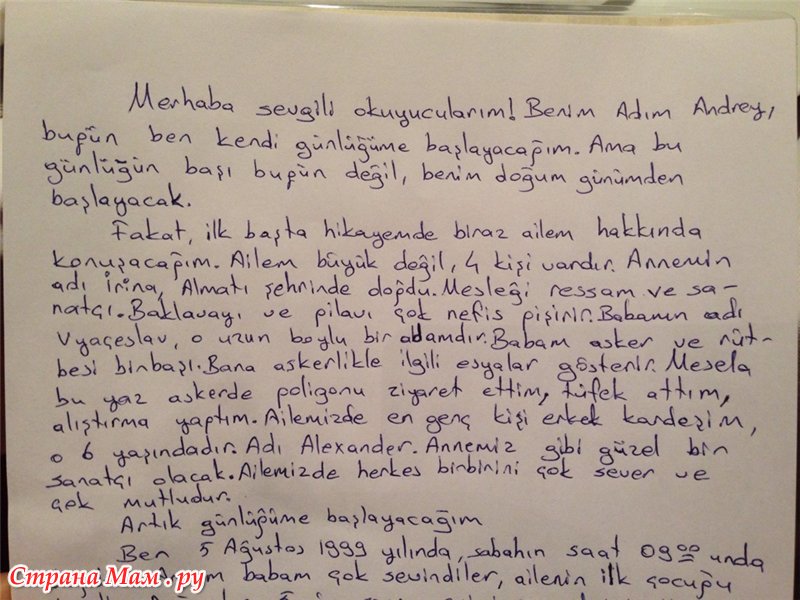 Merhaba sevgili okuyucularım! Benim Adım Andrey,
bugün ben kendi günlüğüme başlayacağım. Ama bu
günlüğün başı bugün değil, benim doğum günümden
başlayacak.
Fakat, ilk başta hikayemde biraz ailem hakkında
konuşacağım. Ailem büyük değil, 4 kişi vardır. Annemin
adı İrina, Almatı şehrinde doğdu. Mesleği ressam ve sa-
natçı. Baklavayı ve pilavı çok nefis pişirir. Babamın adı
Vyaçeslav, o uzun boylu bir adamdır. Babam asker ve rüt-
besi binbaşı. Bana askerlikle ilgili esyalar gösterir. Mesela
bu yaz askerde poligonu ziyaret ettim, tüfek attım,
alıştırma yaptım. Ailemizde en genç kişi erkek kardeşim,
o 6 yaşındadır. Adı Alexander. Annemiz gibi güzel bir
sanatçı olacak. Ailemizde herkes birbirini çok sever ve
çok mutludur.
Artık günlüğüme başlayacağım
Ben 5 Ağustos 1999 yılında, sabahın saat 09⁰⁰ unda
babam çok sevindiler, ailenin ilk çocuğu
Страна Мам.ру